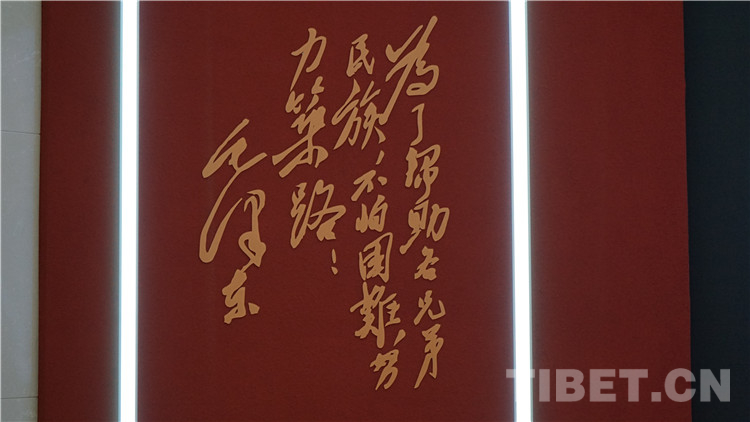 為了帮助各兄弟
民族，不怕困難，努
力築路！
毛澤东
TIBET.CN